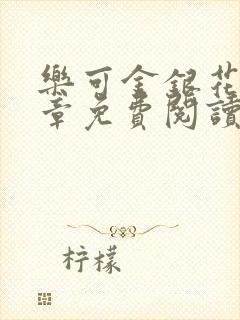 樂可金銀花
章免費閱讀
柠檬